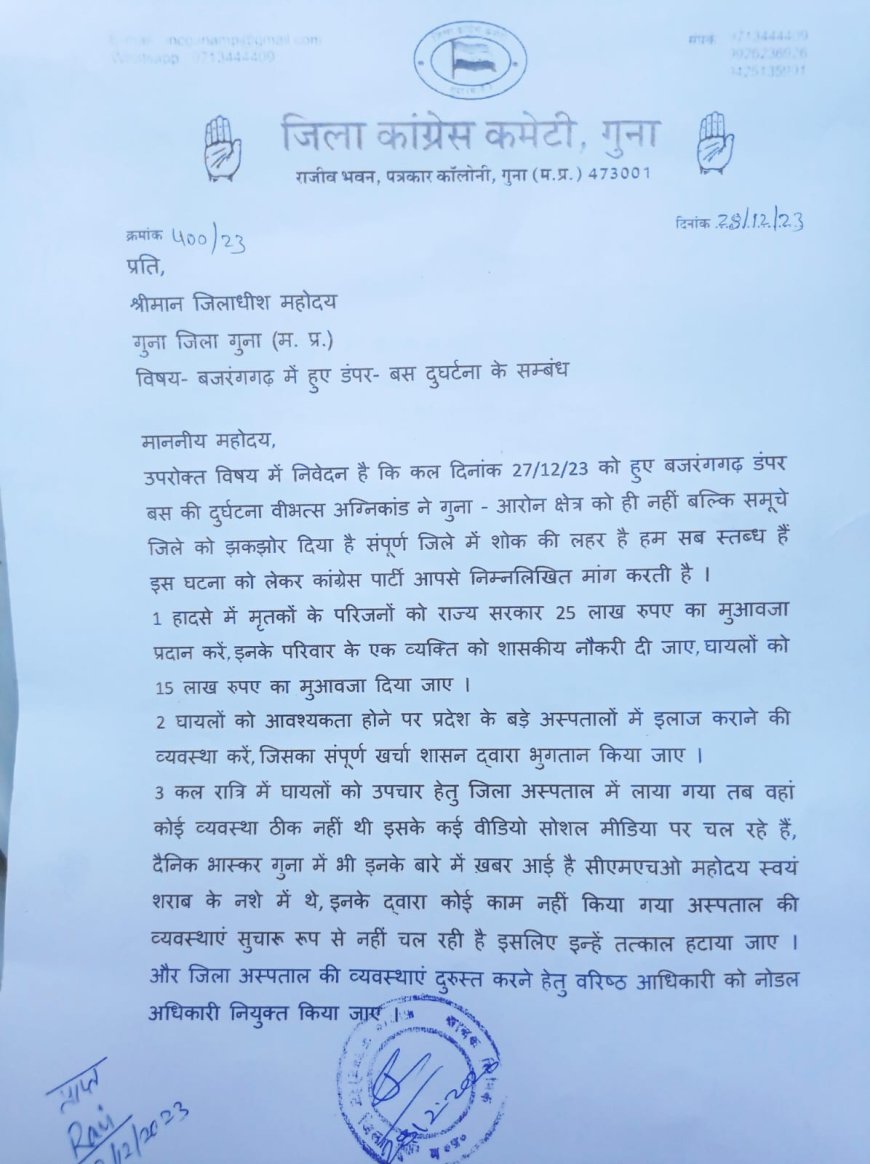 Whatsapp 9713444409
जिला कांग्रेस कमेटी, गुना
राजीव भवन, पत्रकार कॉलोनी, गुना (म.प्र.) 473001
क्रमांक 400/23
दिनांक 28/12/23
प्रति,
श्रीमान जिलाधीश महोदय
गुना जिला गुना (म. प्र.)
विषय- बजरंगगढ़ में हुए डंपर- बस दुघर्टना के सम्बंध
माननीय महोदय,
उपरोक्त विषय में निवेदन है कि कल दिनांक 27/12/23 को हुए बजरंगगढ़ डंपर
बस की दुर्घटना वीभत्स अग्निकांड ने गुना - आरोन क्षेत्र को ही नहीं बल्कि समूचे
जिले को झकझोर दिया है संपूर्ण जिले में शोक की लहर है हम सब स्तब्ध हैं
इस घटना को लेकर कांग्रेस पार्टी आपसे निम्नलिखित मांग करती है ।
1 हादसे में मृतकों के परिजनों को राज्य सरकार 25 लाख रुपए का मुआवजा
प्रदान करें,इनके परिवार के एक व्यक्ति को शासकीय नौकरी दी जाए,घायलों को
15 लाख रुपए का मुआवजा दिया जाए ।
2 घायलों को आवश्यकता होने पर प्रदेश के बड़े अस्पतालों में इलाज कराने की
व्यवस्था करें,जिसका संपूर्ण खर्चा शासन द्वारा भुगतान किया जाए ।
3 कल रात्रि में घायलों को उपचार हेतु जिला अस्पताल में लाया गया तब वहां
कोई व्यवस्था ठीक नहीं थी इसके कई वीडियो सोशल मीडिया पर चल रहे हैं,
दैनिक भास्कर गुना में भी इनके बारे में ख़बर आई है सीएमएचओ महोदय स्वयं
शराब के नशे में थे,इनके द्वारा कोई काम नहीं किया गया अस्पताल की
व्यवस्थाएं सुचारू रूप से नहीं चल रही है इसलिए इन्हें तत्काल हटाया जाए ।
और जिला अस्पताल की व्यवस्थाएं दुरुस्त करने हेतु वरिष्ठ आधिकारी को नोडल
अधिकारी नियुक्त किया जाए ।
प्राप्त
Ravi
/12/2023